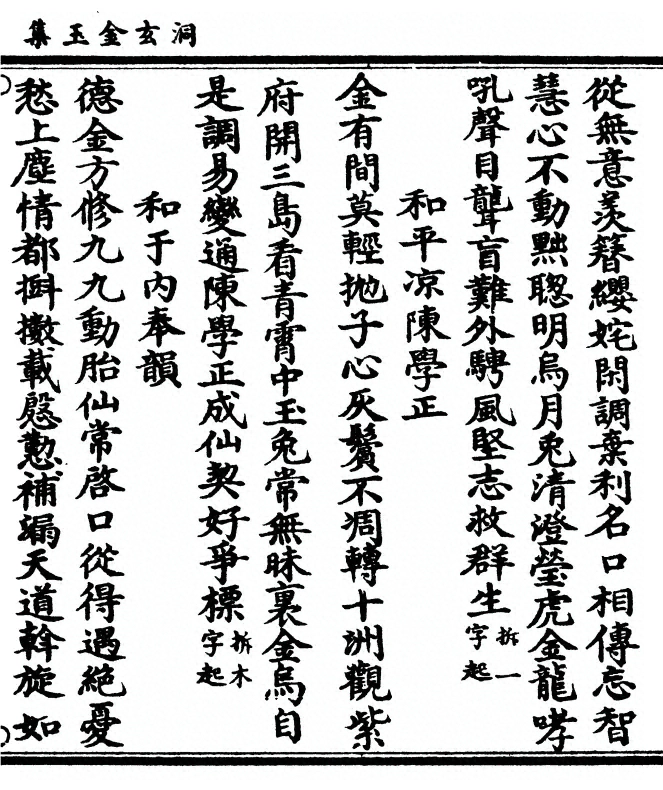 洞玄金玉集
從無意羨簪纓姹閑調棄利名口相傳忘智
慧心不動黜聰明烏月兎清澄瑩虎金龍哮
吼聲目聾盲難外騁風堅志救群生拆一字起
和平凉陳學正
金有間莫輕抛子心灰鬢不凋轉十洲觀紫
府開三島看青霄中玉兔常無昧裏金烏自
是調易變通陳學正成仙契好爭標拆木字起
和于內奉韻
德金方修九九動胎仙常啓口從得遇絕憂
愁上塵情都㪺擻載慇懃補漏天道斡旋如